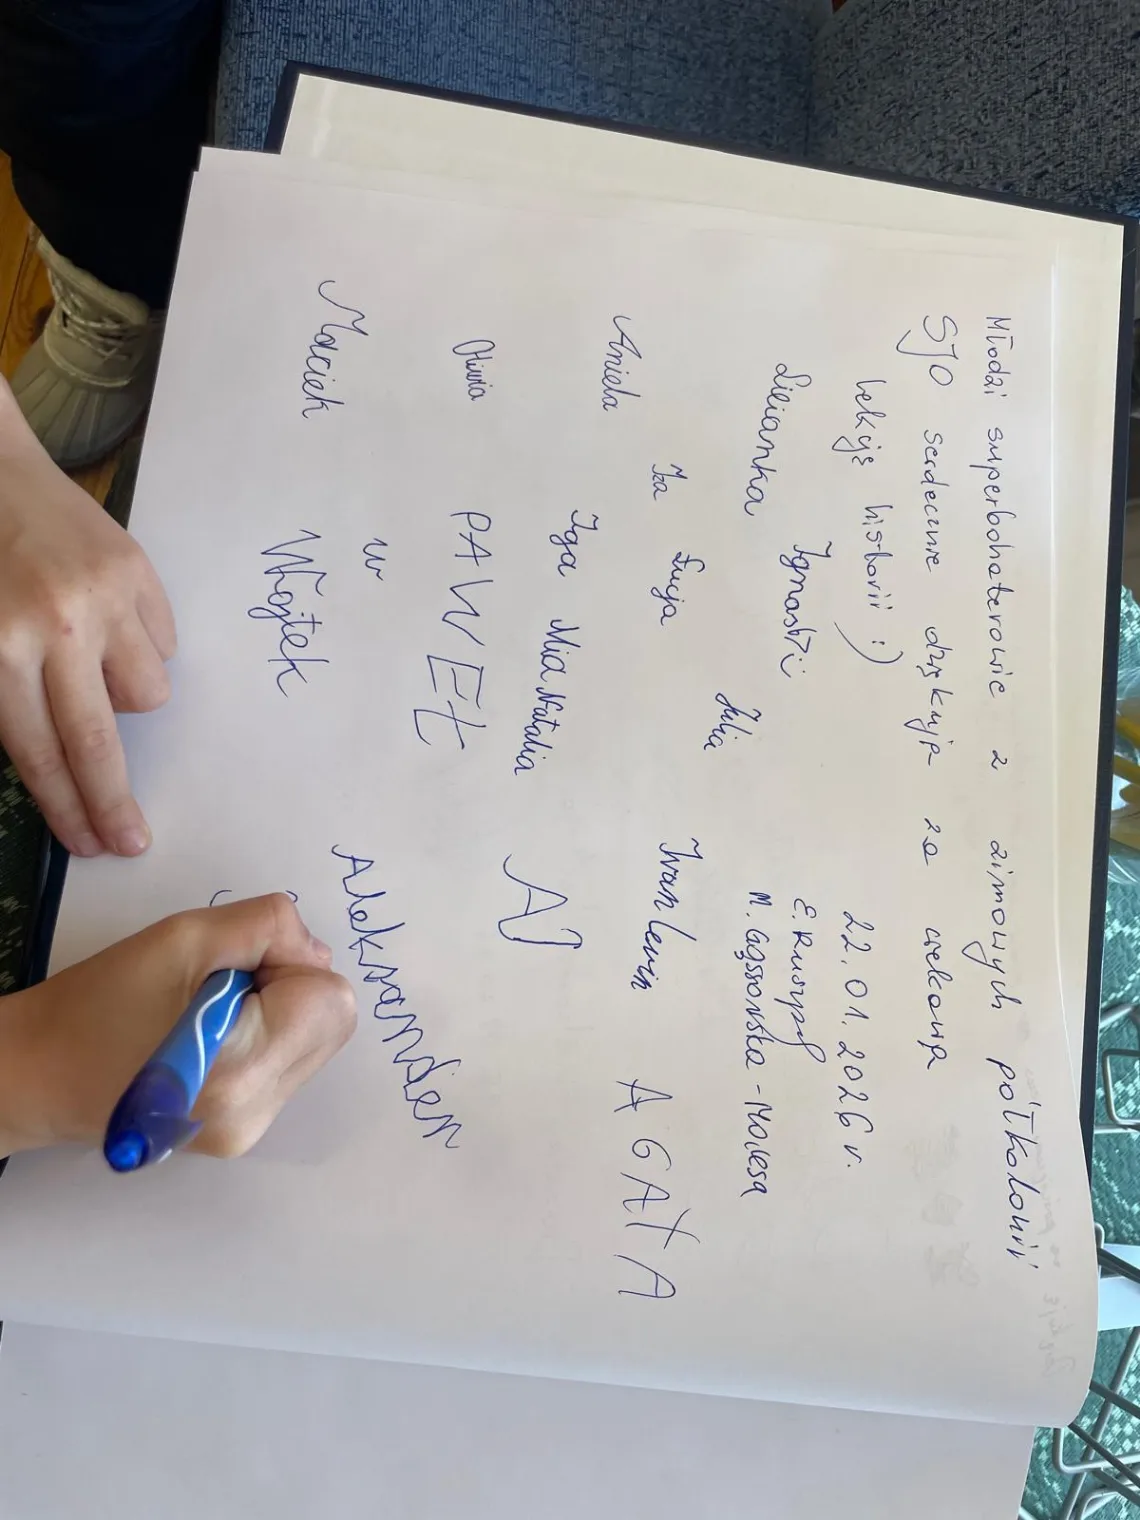 Młodzi superbohaterowie z zimowych półkolonii
SJO serdecznie dziękują za ciekawą
lekcję historii :)
22.01.2026 r.
Lilianka
Ignaś
Julia
Aniela
Iza
Łucja
Iwan Lewin
AGATA
Iga
Mia Natalia
A
Oliwia
PAWEŁ
Maciek
W
Aleksander
Wojtek